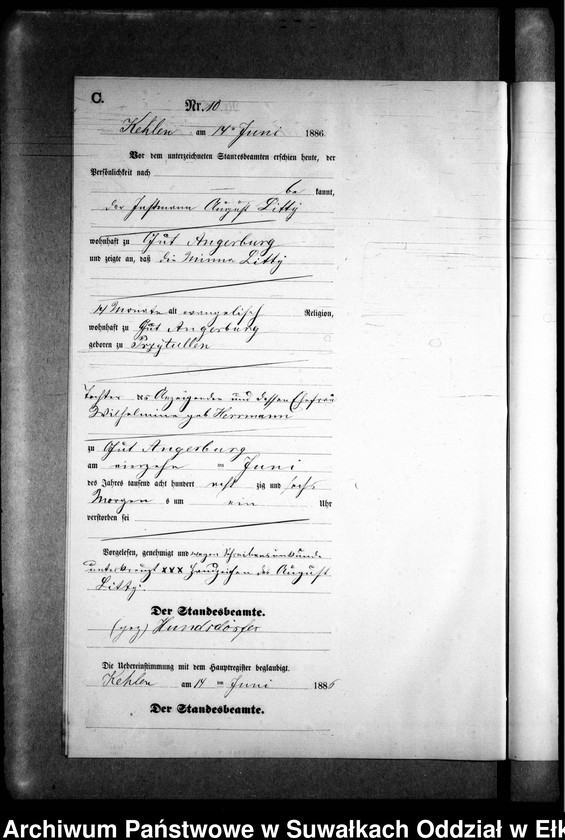 C.
Nr. 10
Kehlen am 14 ten Juni 1886.
Vor dem unterzeichneten Standesbeamten erschien heute, der
Persönlichkeit nach
be kannt,
der Instmann August Litty
wohnhaft zu Gut Angerburg
und zeigte an, daß die Minna Litty
14 Monate alt evangelisch Religion,
wohnhaft zu Gut Angerburg
geboren zu Przytullen
Tochter des Anzeigenden und dessen Ehefrau
Wilhelmine geb Herrmann
zu Gut Angerburg
am ten Juni
des Jahres tausend acht hundert acht zig und sechs
Morgens um ein Uhr
verstorben sei
Vorgelesen, genehmigt und wegen Schreibensunkunde
unterkreuzt XXX Handzeichen des August
Litty.
Der Standesbeamte.
(gez) Hundsdörfer
Die Uebereinstimmung mit dem Hauptregister beglaubigt.
Kehlen am 14 ten Juni 1886
Der Standesbeamte.
Archiwum Państwowe w Suwałkach Oddział w Ełk